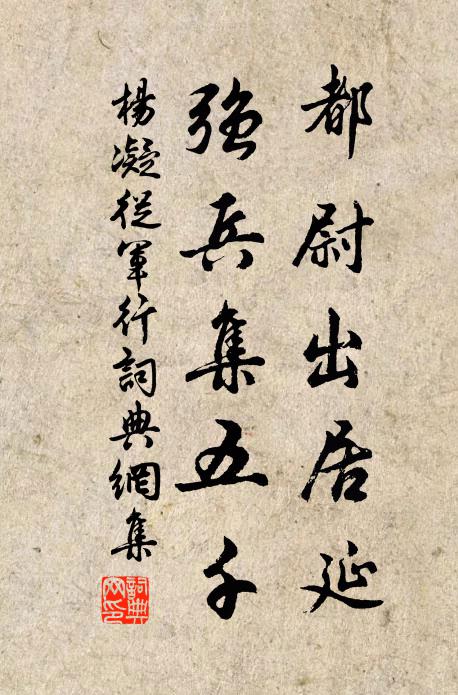 都尉出居延
強兵集五千
楊凝從軍行詞典網集
詞典網印